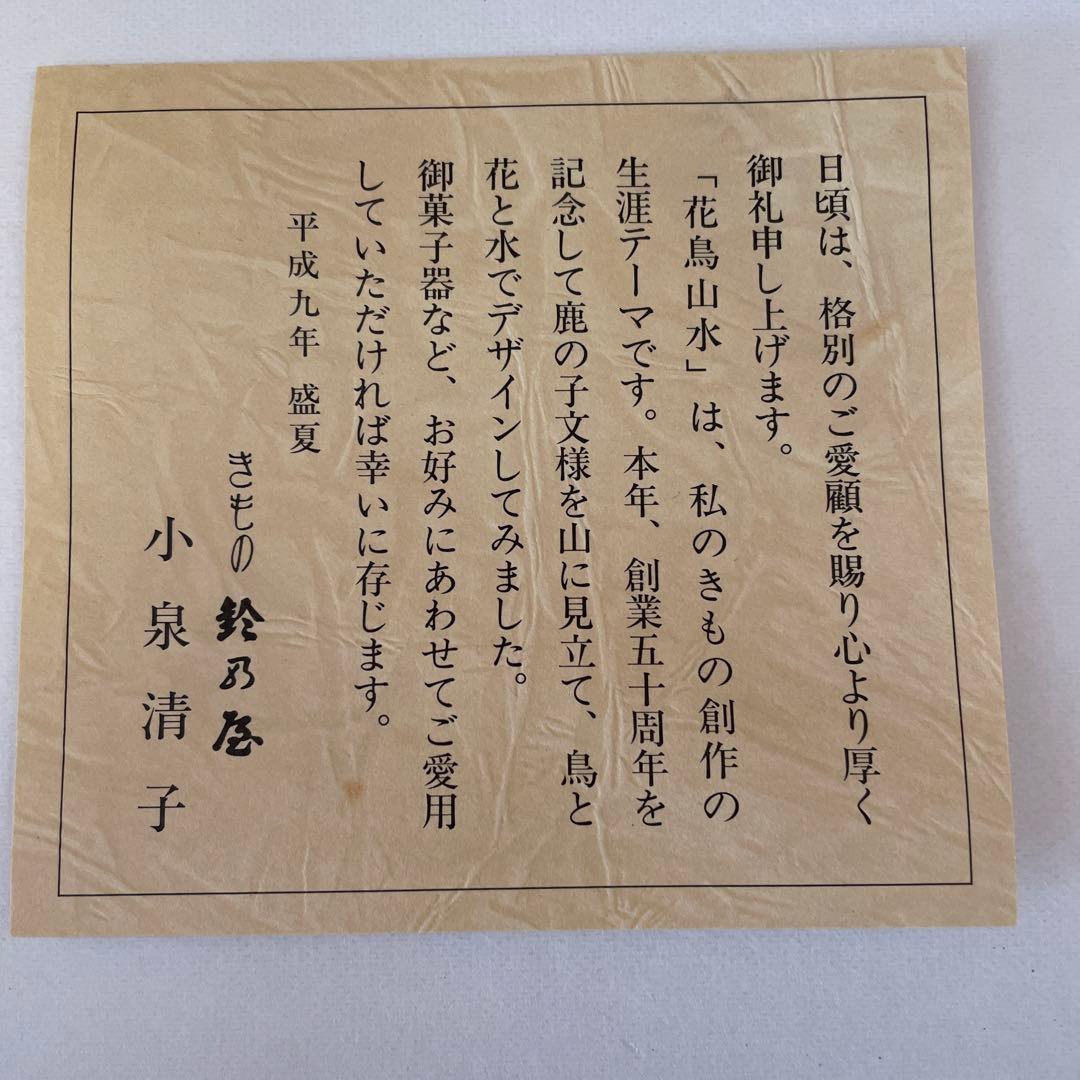 日頃は、格別のご愛顧を賜り心より厚く
御礼申し上げます。
「花鳥山水」は、私のきもの創作の
生涯テーマです。本年、創業五十周年を
記念して鹿の子文様を山に見立て、鳥と
花と水でデザインしてみました。
御菓子器など、お好みにあわせてご愛用
していただければ幸いに存じます。
平成九年 盛夏
きもの 鈴乃屋
小泉清子